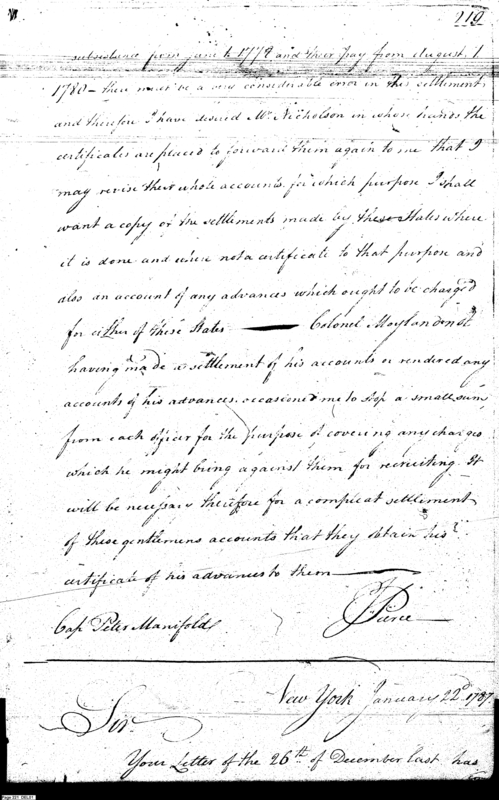 219
subsistance from June 1779 and their Pay from August 1
1780 – there must be a very considerable error in this settlement
and therefore I have desired Mr. Nicholson in whose hands the
certificates are placed to forward them again to me that I
may revise their whole accounts for which purpose I shall
want a copy of the settlements made by these States where
it is done and where not a certificate to that purpose and
also an account of any advances which ought to be charged
for either of these States — Colonel Moylan not
having made a settlement of his accounts or rendered any
accounts of his advances occasioned me to stop a small sum
from each officer for the purpose of covering any charges
which he might bring against them for recruiting. It
will be necessary therefore for a compleat settlement
of these gentlemens accounts that they obtain his
certificate of his advances to them —
Cap Peter Manifold
Pierce
New York January 22d 1787.
Sir.
Your Letter of the 26th of December last has